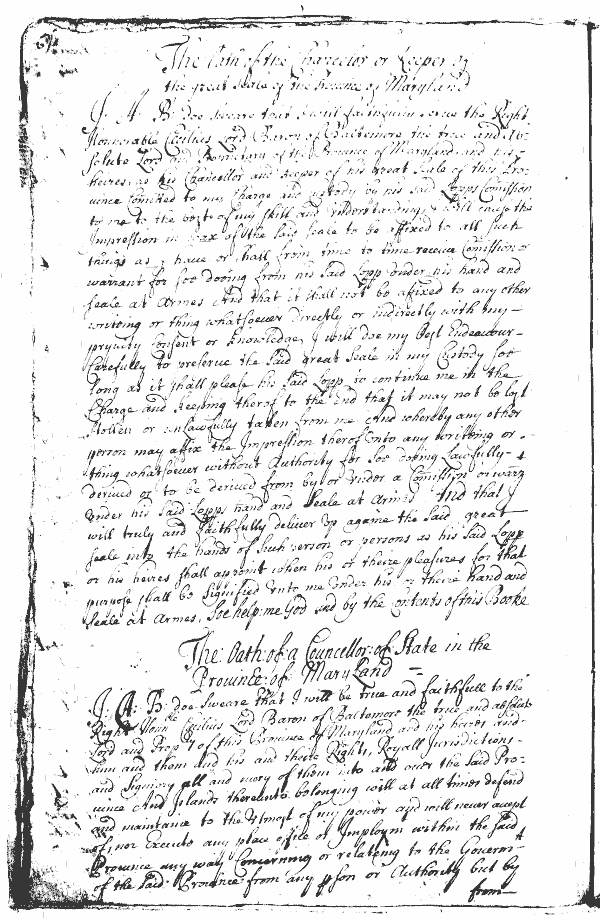 The Oath of the Chancelor or Keeper of
the great Seale of the Province of Maryland
I. A. B. doe sweare that I will faithfully serve the Right
Honnorable Cecilius Lord Baron of Baltemore the true and Ab-
solute Lord and Proprietary of this Province of Maryland and his
heires, as his Chancellor and Keeper of his great Seale of this Pro-
vince Comitted to my Charge and Custody by his said Lopps Comission
to me to the best of my skill and understanding, I will cause the
Impression in wax of the said seale to be affixed to all such
things as I have or shall from time to time receive Comission or
warrant for soe dooing from his said Lopp under his hand and
seale at Armes And that it shall not be affixed to any other
writting or thing whatsoever directly or indirectly with my
privity Consent or knowledge, I will doe my best Endeavour
Carefully to preserve the said great Seale in my Custody soe
long as it shall please his said Lopp to continue me in the
Charge and Keeping therof to the End that it may not be lost
stollen or unlawfully taken from me And whereby any other
person may affix the Impression therof unto any writting or
thing whatsoever without Authority for soe dooing Lawfully
derived or to be derived from by or under a Comission or warrt
under his said Lopps hand and seale at Armes And that I
will truly and faithfully deliver up againe the said great
seale into the hands of such person or persons as his said Lopp
or his heires shall appoint when his or theire pleasures for that
purpose shall be signified unto me under his or theire hand and
seale at Armes. Soe help me God and by the Contents of this Booke
The Oath of a Councellor of State in the
Province of MaryLand
I. A. B. doe sweare that I will be true and faithfull to the
Right Honble Cecilius Lord Baron of Baltemore the true and absolute
Lord and Propry of this Province of Maryland and his heires and
him and them and his and theire Rights, Royall Jurisdictions
and Signiory all and every of them into and over the said Pro-
vince And Islands thereunto belonging will at all times defend
and maintaine to the utmost of my power and will never accept
of nor Execute any place office or Imploymt within the said
Province any way Concerning or relateing to the Governmt
of the said Province from any pson or Authority but by
from